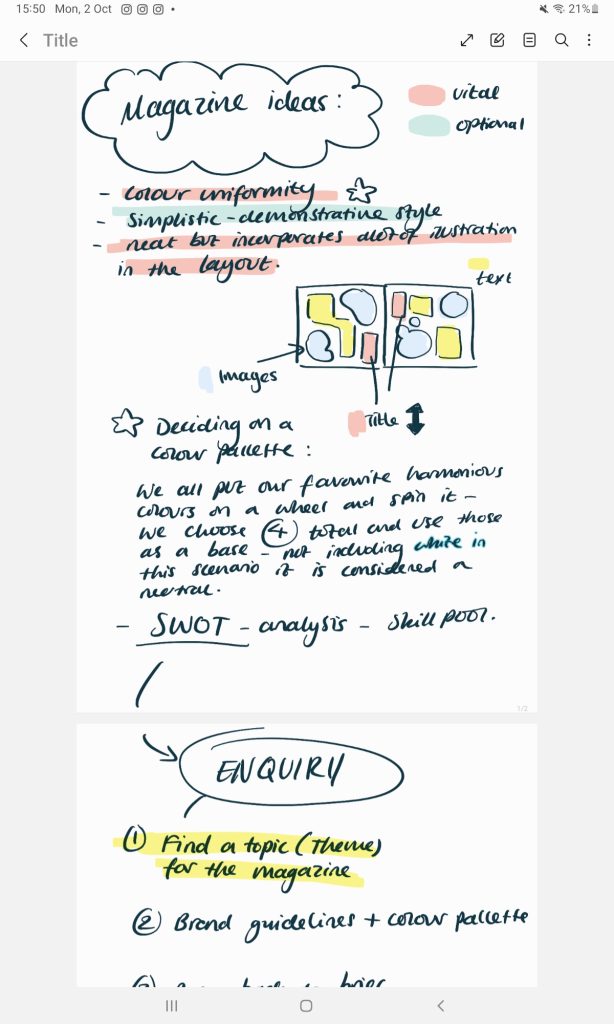 15:50 Mon, 2 Oct
21%
Title
Magazine ideas:
vital
optional
- Colour uniformity
- Simplistic - demonstrative style
- neat but incorporates alot of ilustration
in the layout.
text
Images
Title
Deciding on a
colour pallette:
We all put our favourite harmonious
colours on a wheel and spin it -
we choose 4 total and use those
as a base - not including white in
this scenario it is considered a
neutral.
- SWOT - analysis - skill pool.
1/2
ENQUIRY
1 Find a topic (Theme)
for the magazine
2 Brand guidelines + colour pallette